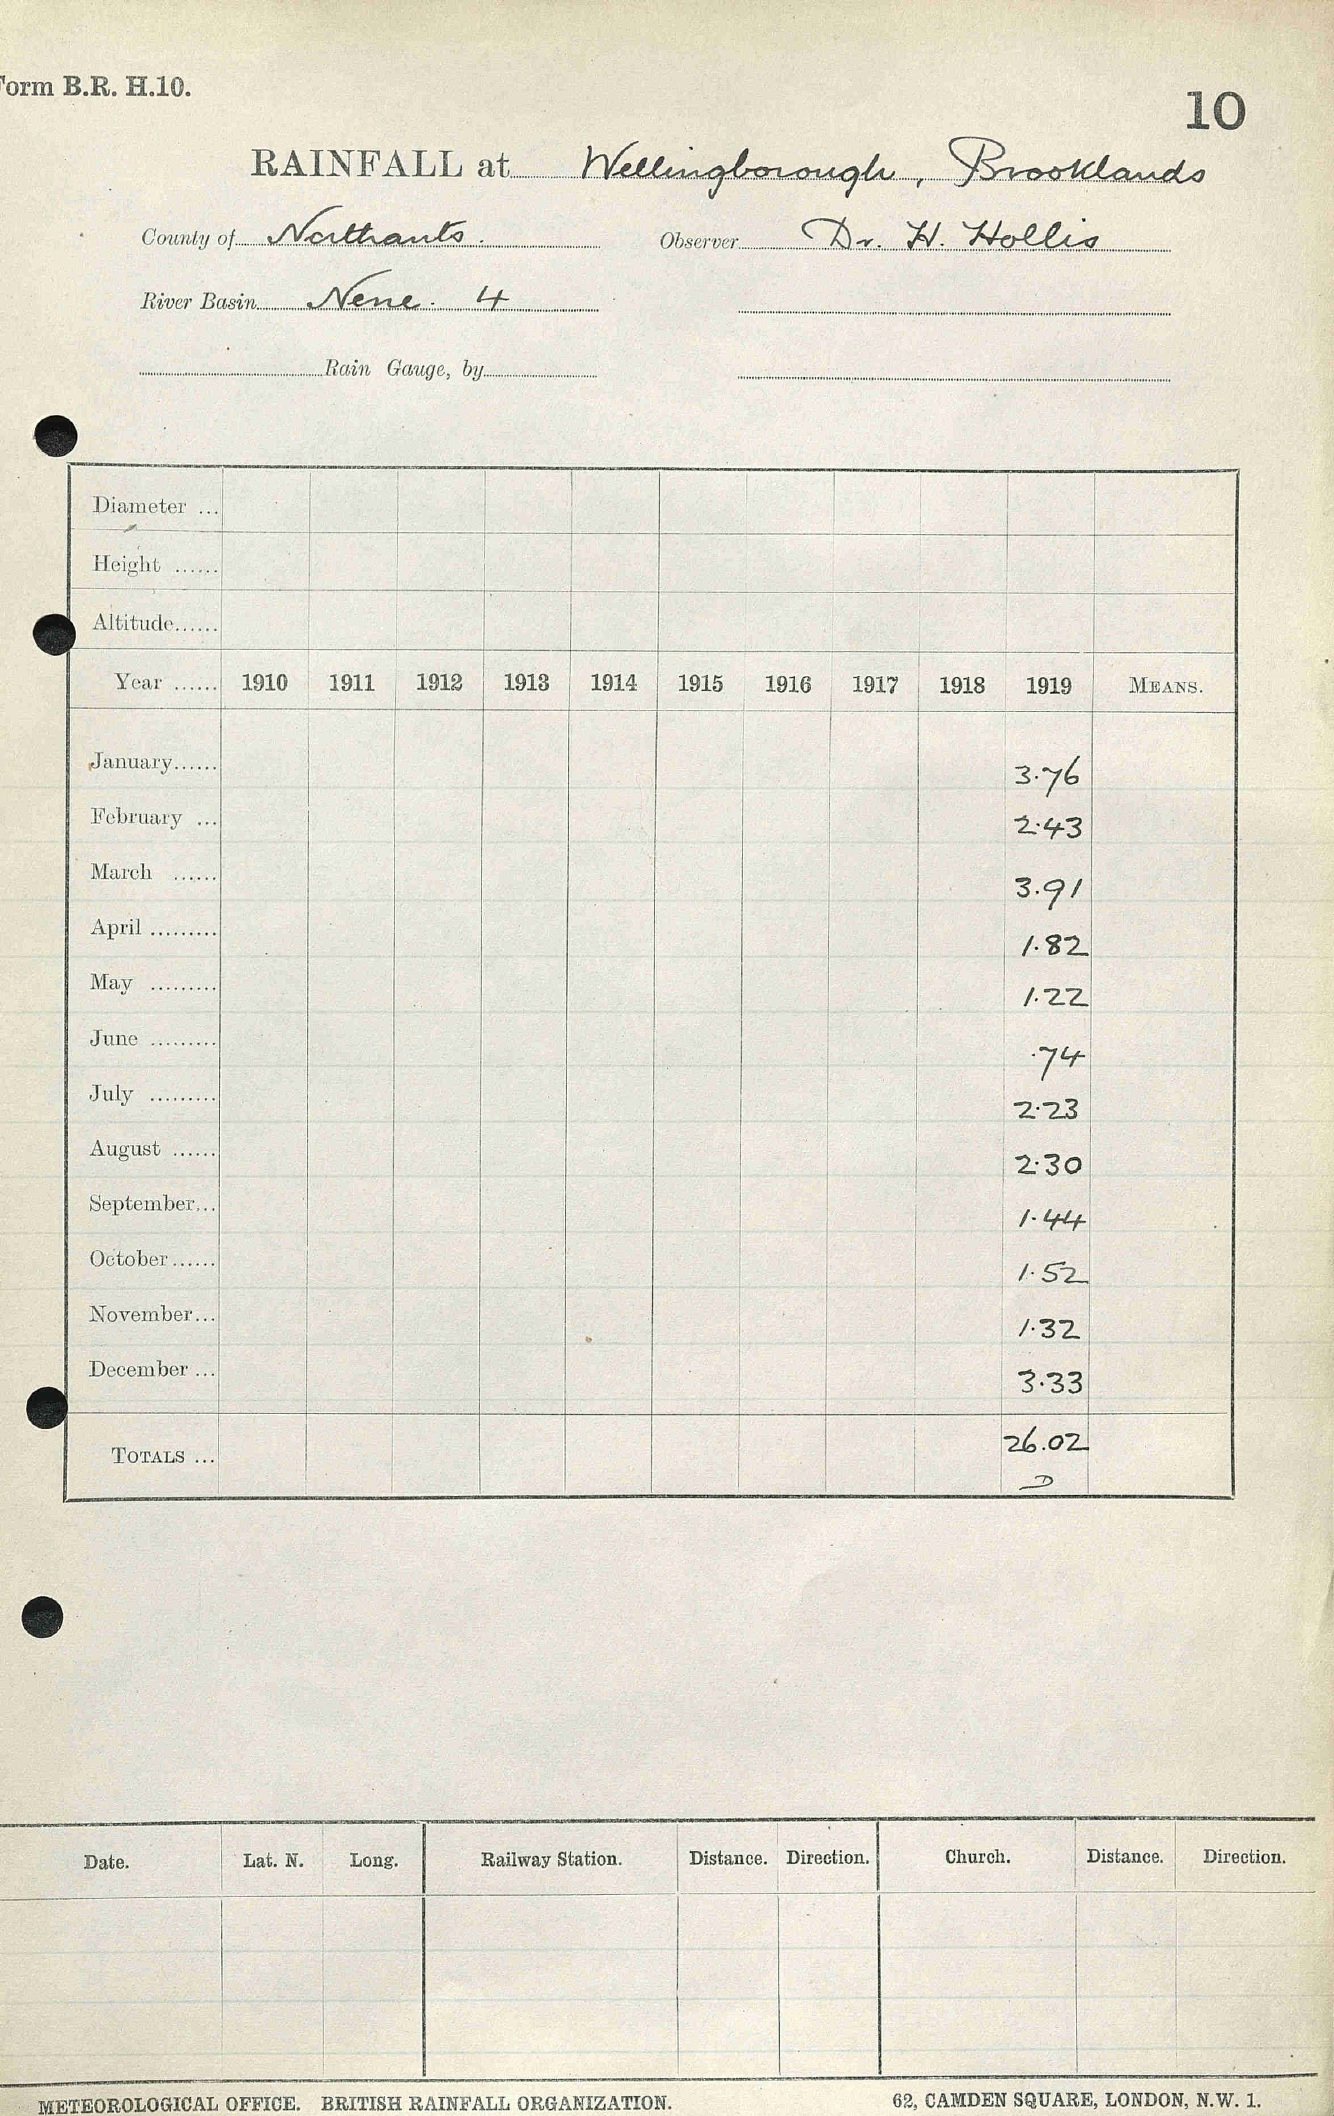 Form B.R. H.10.
10
RAINFALL at Wellingborough, Brooklands
County of Northants. Observer Dr. H. Hollis
River Basin Nene. 4
Rain Gauge, by
Diameter ...
Height ......
Altitude......
Year ...... 1910 1911 1912 1913 1914 1915 1916 1917 1918 1919 MEANS.
January...... 3.76
February ... 2.43
March ...... 3.91
April ......... 1.82
May ......... 1.22
June ......... .74
July ......... 2.23
August ...... 2.30
September... 1.44
October...... 1.52
November... 1.32
December ... 3.33
TOTALS ... 26.02
D
Date. Lat. N. Long. Railway Station. Distance. Direction. Church. Distance. Direction.
METEOROLOGICAL OFFICE. BRITISH RAINFALL ORGANIZATION. 62, CAMDEN SQUARE, LONDON, N.W. 1.